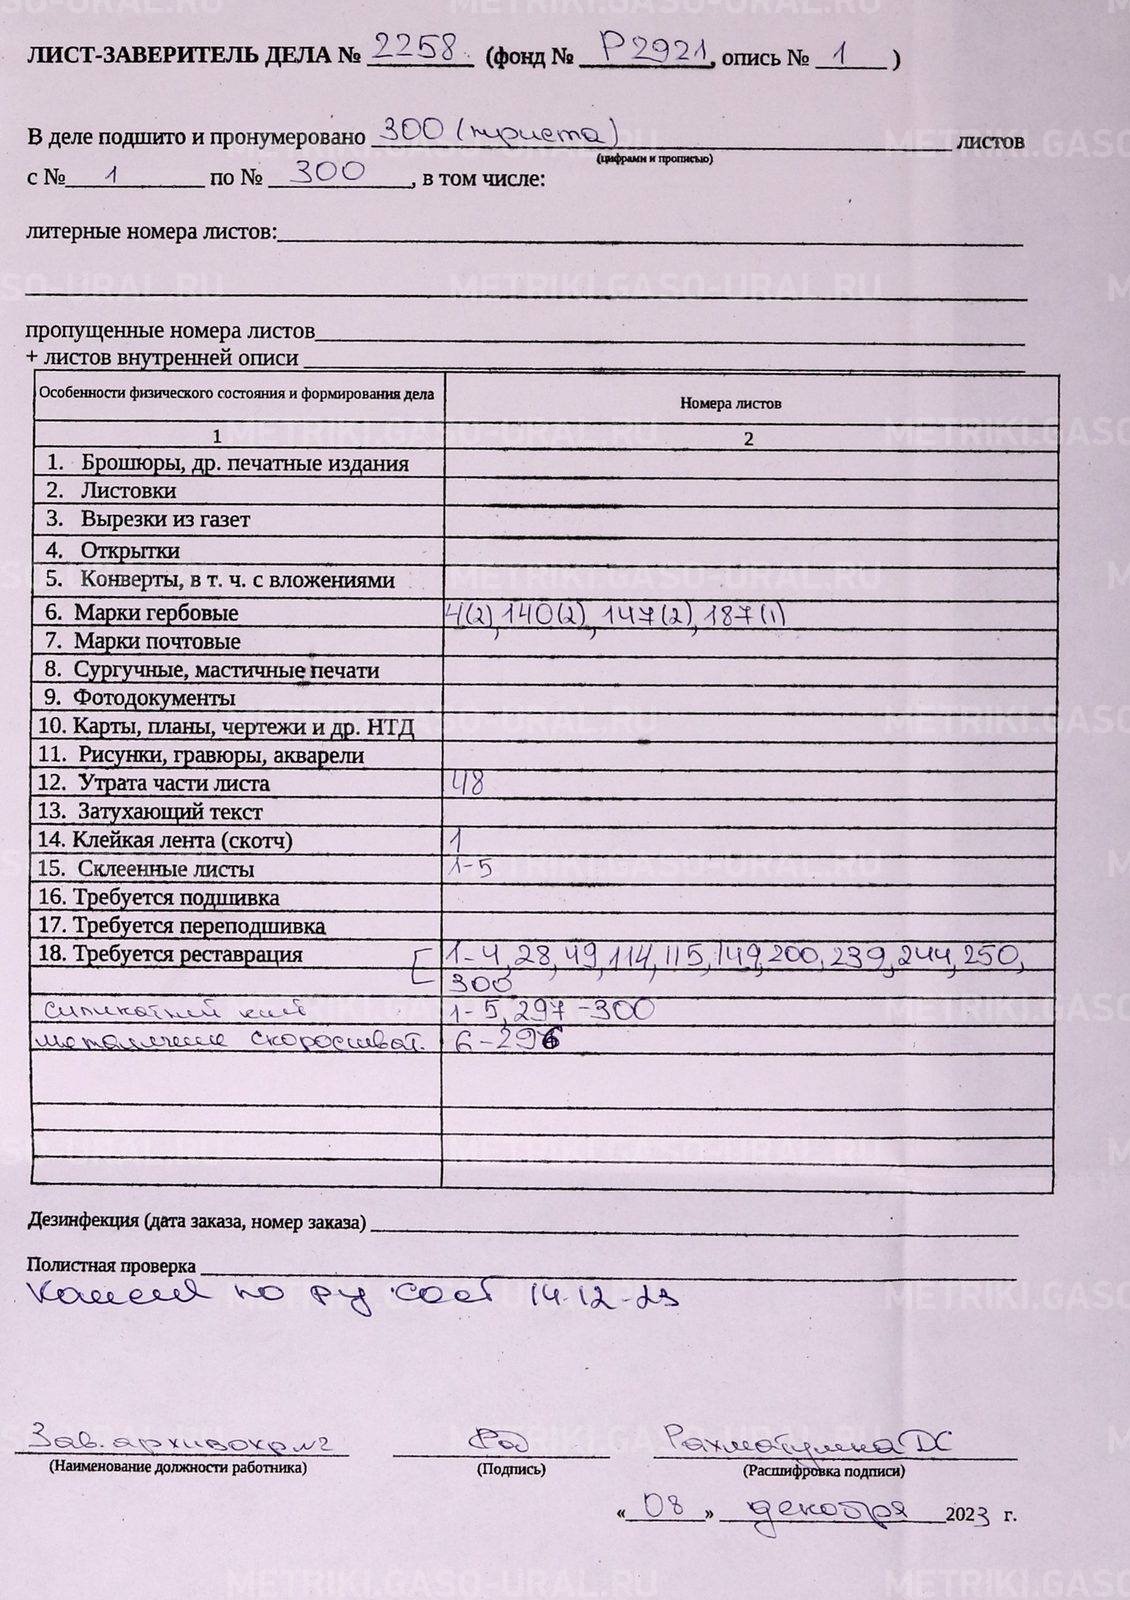 ЛИСТ-ЗАВЕРИТЕЛЬ ДЕЛА № 2258 (фонд № Р2921, опись № 1 )
В деле подшито и пронумеровано 300 (триста) листов
(цифрами и прописью)
с № 1 по № 300, в том числе:
литерные номера листов:
пропущенные номера листов
+ листов внутренней описи
Особенности физического состояния и формирования дела Номера листов
1 2
1. Брошюры, др. печатные издания
2. Листовки
3. Вырезки из газет
4. Открытки
5. Конверты, в т. ч. с вложениями
6. Марки гербовые 4(2), 140(2), 147(2), 187(1)
7. Марки почтовые
8. Сургучные, мастичные печати
9. Фотодокументы
10. Карты, планы, чертежи и др. НТД
11. Рисунки, гравюры, акварели
12. Утрата части листа 48
13. Затухающий текст
14. Клейкая лента (скотч) 1
15. Склеенные листы 1-5
16. Требуется подшивка
17. Требуется переподшивка
18. Требуется реставрация 1-4, 28, 49, 114, 115, 149, 200, 239, 244, 250,
300
1-5, 297-300
скоросшиват. 6-296
Дезинфекция (дата заказа, номер заказа)
Полистная проверка
по 14-12-23
Зав. архивохр №2 Рахматуллина ДС
(Наименование должности работника) (Подпись) (Расшифровка подписи)
«08» декабря 2023 г.
METRIKI.GASO-URAL.RU